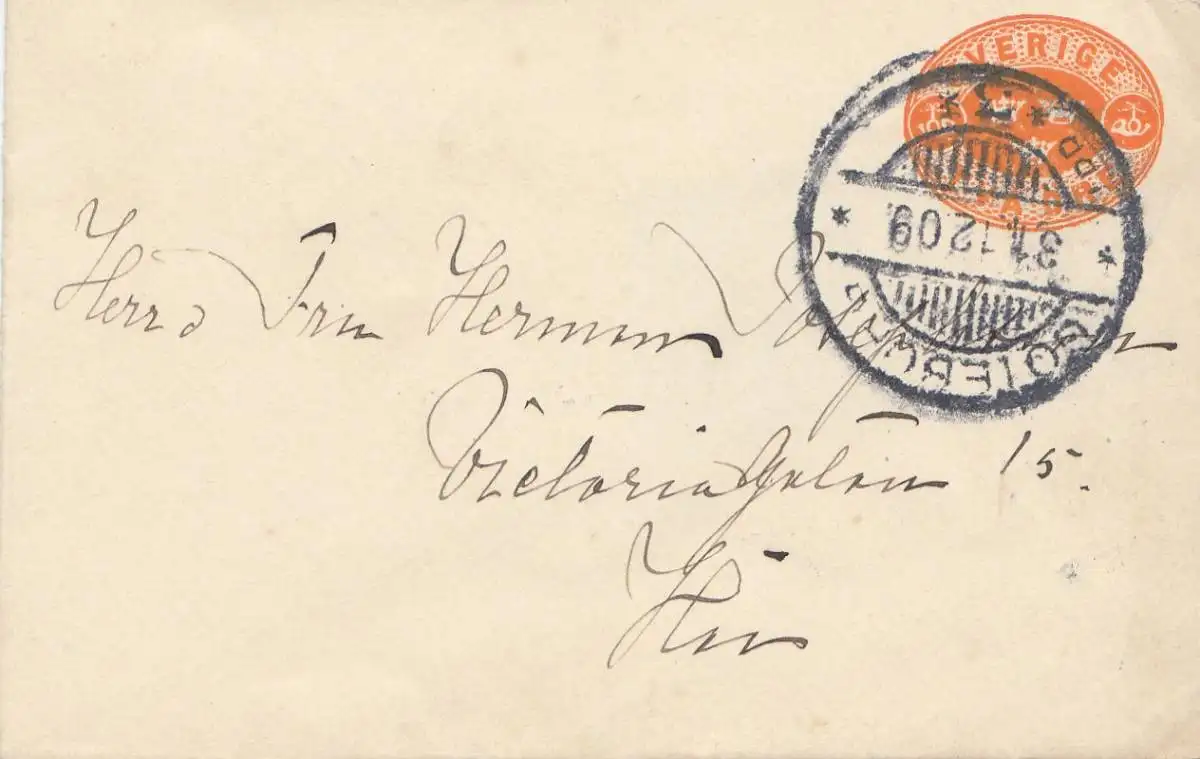 SVERIGE
20
31.12.09.
GÖTEBORG
Herr o Fru Herman
Victoriagatan 15.
Här